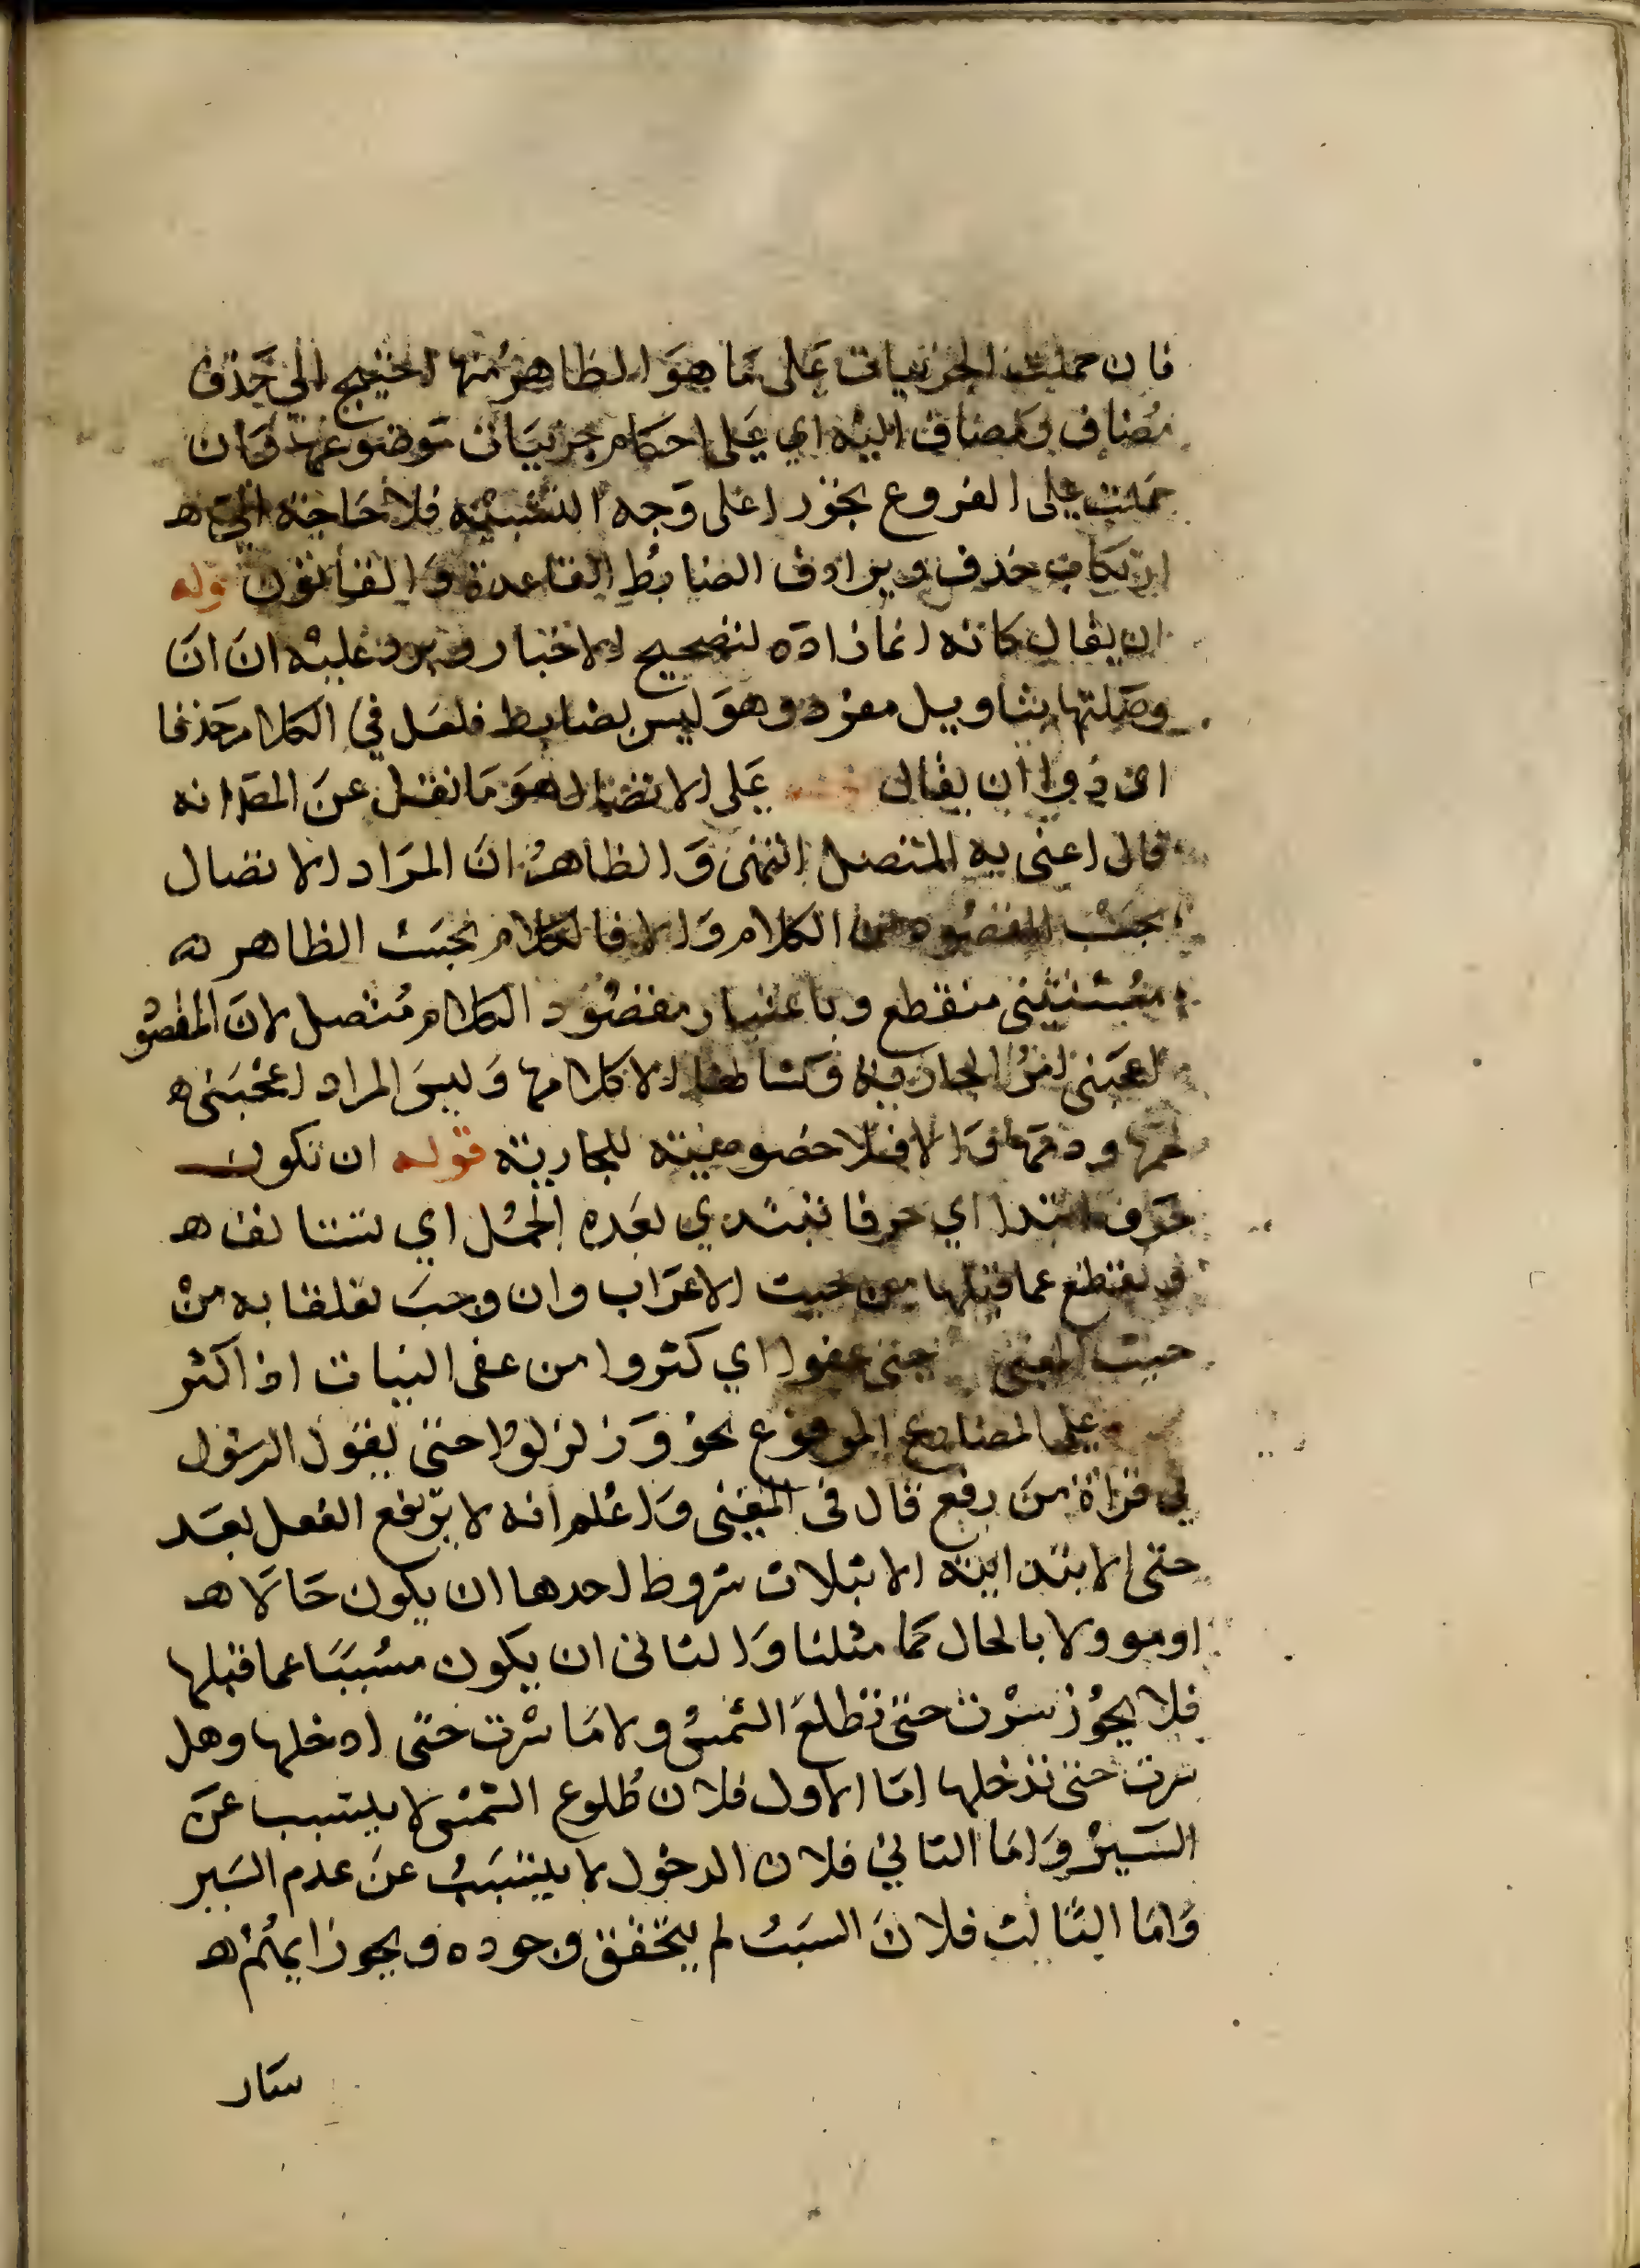 فان حملت الجزئيات على ما هو الظاهر منها احتيج الى حذف
مضاف ومضاف اليه اي على احكام جزئيات موضوعها وان
حملت على الفروع تجوزا على وجه التشبيه فلا حاجة الى ه
ارتكاب حذف ويرادف الضابط القاعدة والقانون قوله
ان يقال كانه انما زاده لتصحيح الاخبار ويرد عليه ان ان
وصلتها بتاويل مفرد وهو ليس بضابط فلعل في الكلام حذفا
اي ذو ان يقال على الاتصال هو ما نقل عن المص انه
قال اعني به المتصل التمني والظاهر ان المراد الاتصال
بحسب المقصود من الكلام والا فالكلام بحسب الظاهر ه
مستثنى منقطع وباعتبار مقصود الكلام متصل لان المقصو
اعجبني امر الجارية وكشاطها الا كلامها وليس المراد اعجبني ه
لحمها ودمها والا فلا خصوصية للجارية قوله ان تكون
حرف ابتدا اي حرفا تبتدي بعده الجمل اي تستانف ه
وتقتطع عما قبلها من حيث الاعراب وان وجب تعلقا به من
حيث المعنى حتى عفوا اي كثروا من عفى النبات اذا كثر
على المضارع المرفوع نحو وزلزلوا حتى يقول الرسول
في قراة من رفع قال في المغني واعلم انه لا يرتفع الفعل بعد
حتى الابتدائية الا بثلاث شروط احدها ان يكون حالا ه
او موولا بالحال كما مثلنا والثاني ان يكون مسببا عما قبلها
فلا يجوز سرت حتى تطلع الشمس ولا ما سرت حتى ادخلها وهل
سرت حتى تدخلها اما الاول فلان طلوع الشمس لا يتسبب عن
السير واما الثاني فلان الدخول لا يتسبب عن عدم السير
واما الثالث فلان السبب لم يتحقق وجوده ويجوز ايهم ه
سار